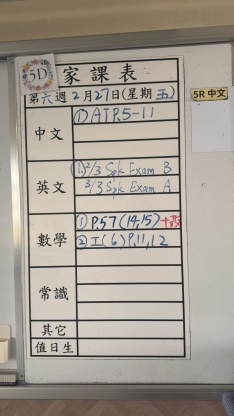 5D
家課表
5R 中文
第六週 2月27日(星期五)
中文
① AI P.5-11
英文
①. 2/3 Spk Exam B
3/3 Spk Exam A
數學
① P.57 (14,15)
② I(6) P.11,12
常識
其它
值日生